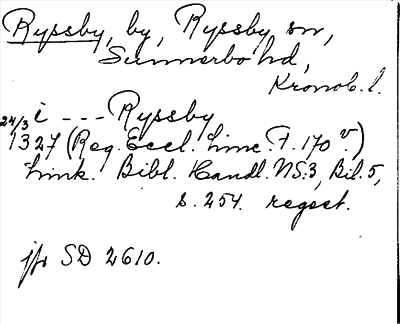 Ryssby, by, Ryssby sn,
Sunnerbo hd,
Kronob. l.
24/3 i --- Ryssby
1327 (Reg. Eccl. Linc. F. 170 v.)
Link. Bibl. Handl. NS:3, Bil. 5,
s. 254. regest.
jfr SD 2610.